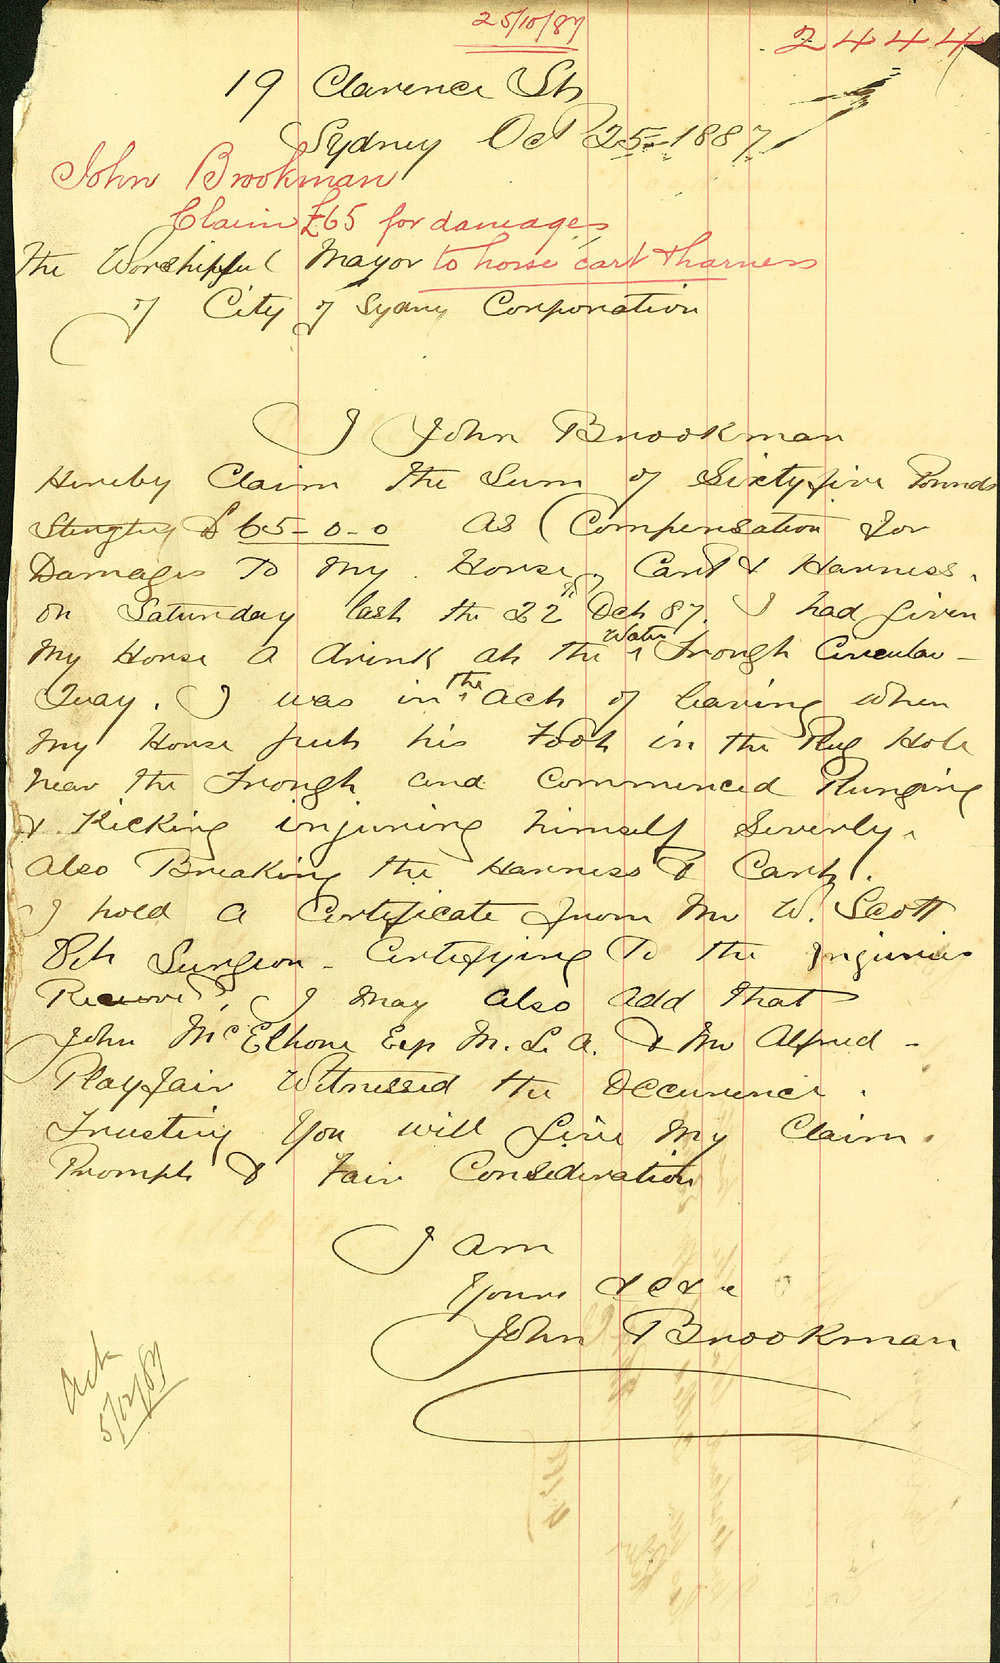 25/10/87
2444
19 Clarence St
Sydney Oct 25 - 1887
John Brookman
Claim £65 for damages
to horse cart & harness
The Worshipful Mayor
of City of Sydney Corporation
I John Brookman
Hereby Claim the Sum of Sixtyfive Pounds
£65-0-0 As Compensation for
Damages To My Horse, Cart & Harness.
on Saturday last the 22nd Oct 87. I had given
My Horse a drink at the Water Trough Circular -
Quay. I was in the Act of leaving when
My Horse put his Foot in the Plug Hole
near the Trough and Commenced Plunging
& Kicking injuring himself Severly.
also Breaking the Harness & Cart.
I hold a Certificate from Mr W. Scott
Vet Surgeon - Certifying To the Injuries
Received, I may also add that
John McElhone Esq M.L.A. & Mr Alfred -
Playfair Witnessed the Occurence.
Trusting You will give My Claim.
Prompt & Fair Consideration
I am
Yours &c &c
John Brookman
5/12/87